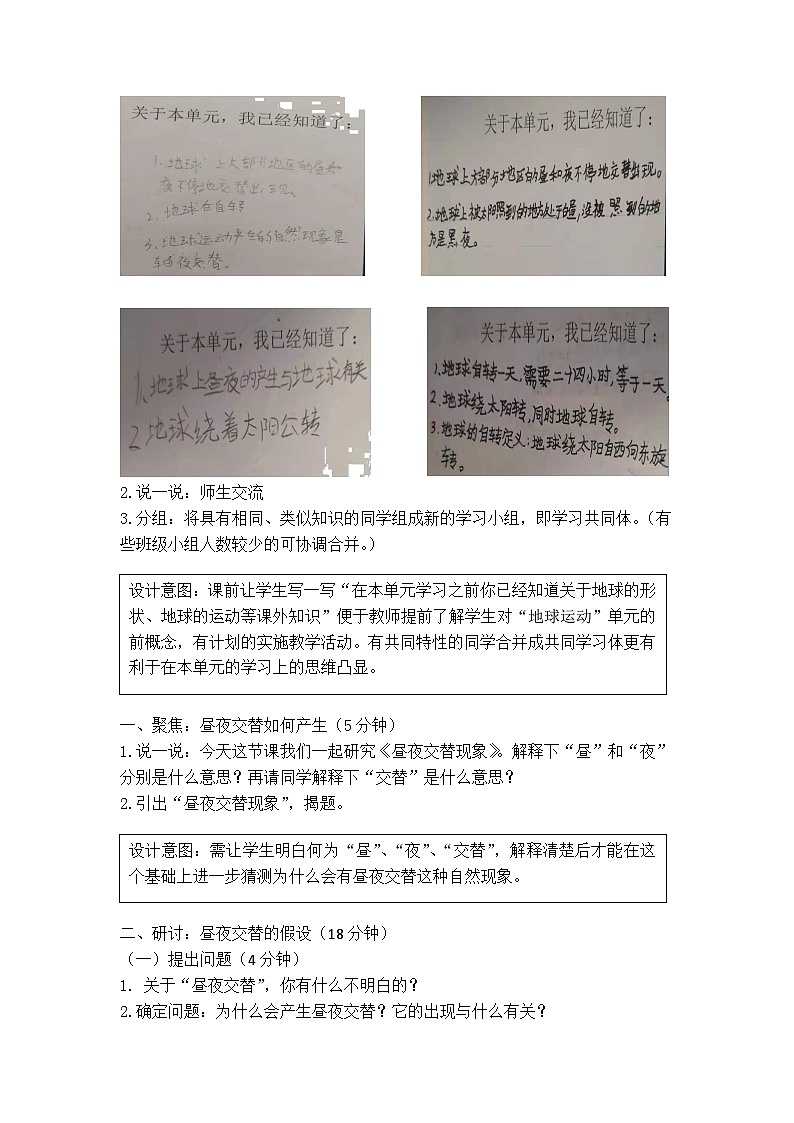 关于本单元，我已经知道了：
1.地球上大部分地区的昼和
夜不停地交替出现。
2.地球在自转
3.地球运动产生的自然现象是
昼夜交替。
关于本单元，我已经知道了：
1.地球上大部分地区的昼和夜不停地交替出现。
2.地球上被太阳照到的地方处于白昼，没被照到的地
方是黑夜。
关于本单元，我已经知道了：
1、地球上昼夜的产生与地球有关
2、地球绕着太阳公转
关于本单元，我已经知道了：
1、地球自转一天，需要二十四小时，等于一天。
2、地球绕太阳转，同时地球自转。
3、地球的自转定义：地球绕太阳自西向东旋
转。
2.说一说：师生交流
3.分组：将具有相同、类似知识的同学组成新的学习小组，即学习共同体。（有
些班级小组人数较少的可协调合并。）
设计意图：课前让学生写一写“在本单元学习之前你已经知道关于地球的形
状、地球的运动等课外知识”便于教师提前了解学生对“地球运动”单元的
前概念，有计划的实施教学活动。有共同特性的同学合并成共同学习体更有
利于在本单元的学习上的思维凸显。
一、聚焦：昼夜交替如何产生（5 分钟）
1.说一说：今天这节课我们一起研究《昼夜交替现象》。解释下“昼”和“夜”
分别是什么意思？再请同学解释下“交替”是什么意思？
2.引出“昼夜交替现象”，揭题。
设计意图：需让学生明白何为“昼”、“夜”、“交替”，解释清楚后才能在这
个基础上进一步猜测为什么会有昼夜交替这种自然现象。
二、研讨：昼夜交替的假设（18 分钟）
（一）提出问题（4 分钟）
1. 关于“昼夜交替”，你有什么不明白的？
2.确定问题：为什么会产生昼夜交替？它的出现与什么有关？